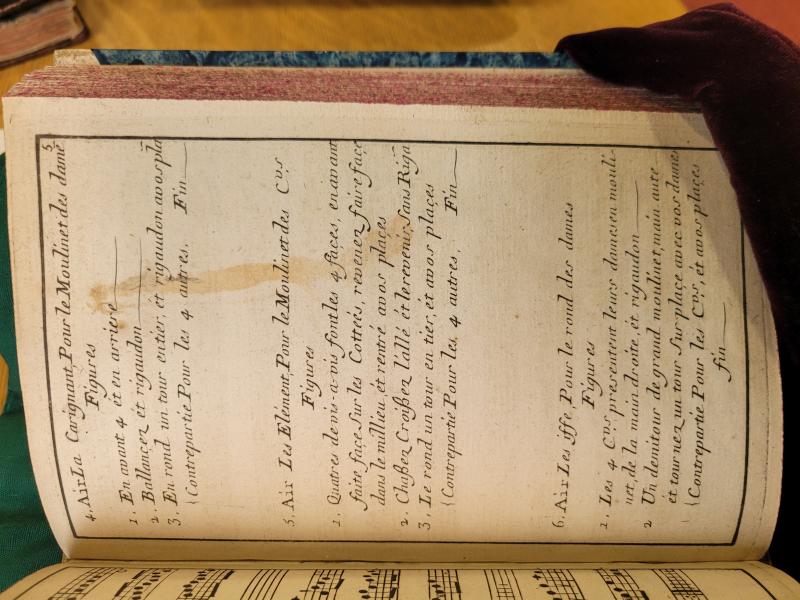 5
4. Air La Carignant Pour le Moulinet des dame
Figures
1. En avant 4 et en arriere
2. Ballancez et rigaudon
3. En rond un tour entier, et rigaudon avos pla
Contrepartie Pour les 4 autres. Fin
5. Air Les Elément Pour le Moulinet des Cvrs
Figures
1. Quatres de vis-a-vis font les 4 faces, en avant
faite face sur les Cotteés, revenez faire face
dans le millieu et rentré avos places
2. Chaßez Croißez l'allé et le revenir, sans Riga
3. Le rond un tour en tier, et avos places
Contrepartie Pour les 4 autres, Fin
6. Air Les iffe, Pour le rond des dames
Figures
1. Les 4 Cvrs presentent leurs dames en mouli-
net, de la main droite, et rigaudon
2 Un demi tour de grand moulinet, main aute
et tournez un tour Sur place avec vos dames
Contrepartie Pour les Cvrs, et avos places
fin